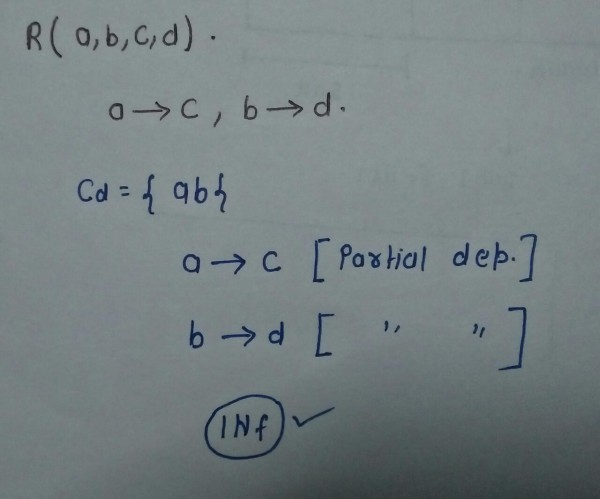 R( a,b,c,d) .
a → c , b → d.
Cd = { ab}
a → c [ Partial dep. ]
b → d [ ,, ,, ]
1Nf ✓